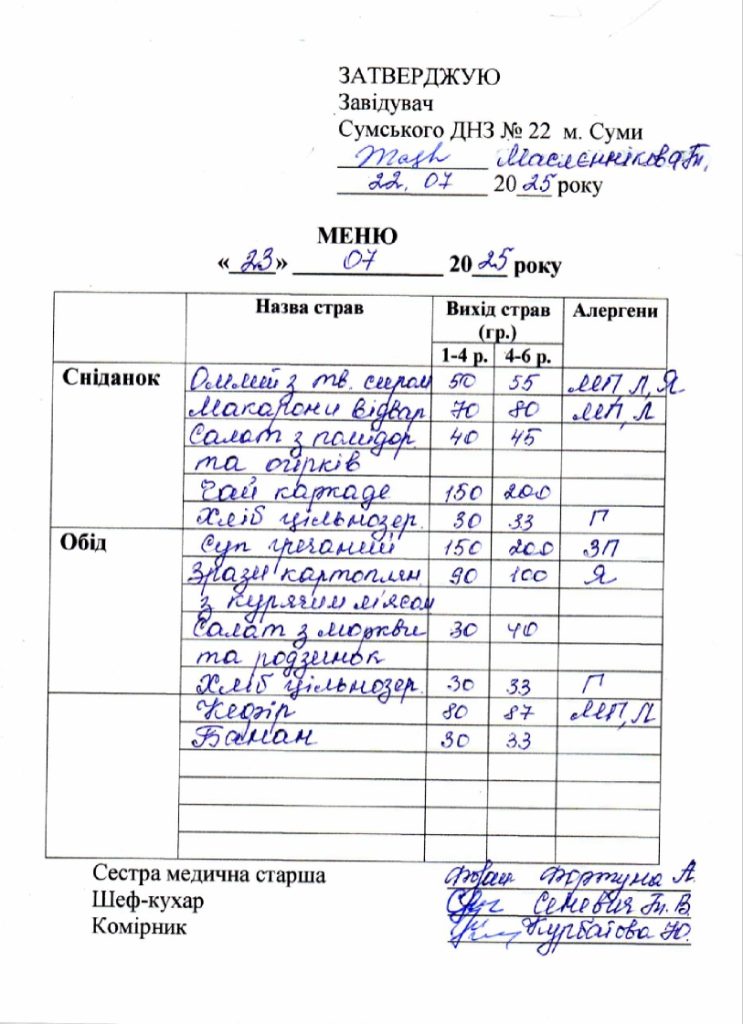 ЗАТВЕРДЖУЮ
Завідувач
Сумського ДНЗ № 22 м. Суми
Маслєннікова Т.
22. 07 2025 року
МЕНЮ
«23» 07 2025 року
Назва страв Вихід страв (гр.) Алергени
1-4 р. 4-6 р.
Сніданок Омлет з тв. сиром 50 55 МП, Л, Я
Макарони відвар 70 80 МП, Л
Салат з помідор. 40 45
та огірків
Чай каркаде 150 200
Хліб цільнозер. 30 33 П
Обід Суп гречаний 150 200 ЗП
Зрази картоплян. 90 100 Я
з курячим м'ясом
Салат з моркви 30 40
та родзинок
Хліб цільнозер. 30 33 П
Кефір 80 87 МП, Л
Банан 30 33
Сестра медична старша Фортуна А.
Шеф-кухар Сеневич Т. В.
Комірник Курбатова Ю.